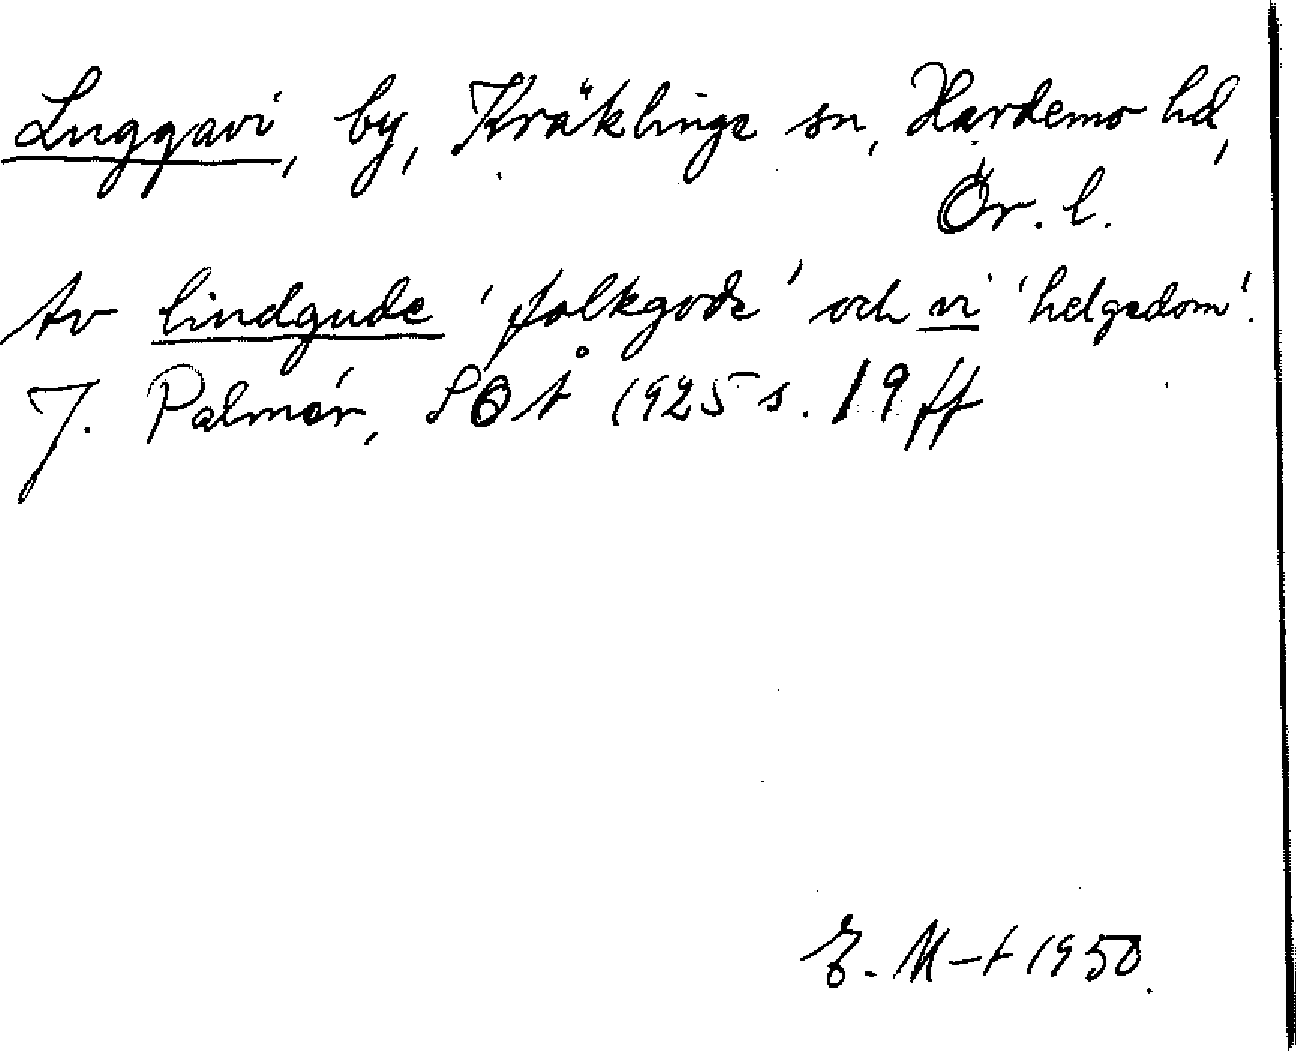 Luggavi, by, Kräklinge sn, Hardemo hd,
Ör. l.
Av lindgude 'folkgode' och vi 'helgedom'.
J. Palmér, SOÅ 1925 s. 19 ff
E. M-t 1950.